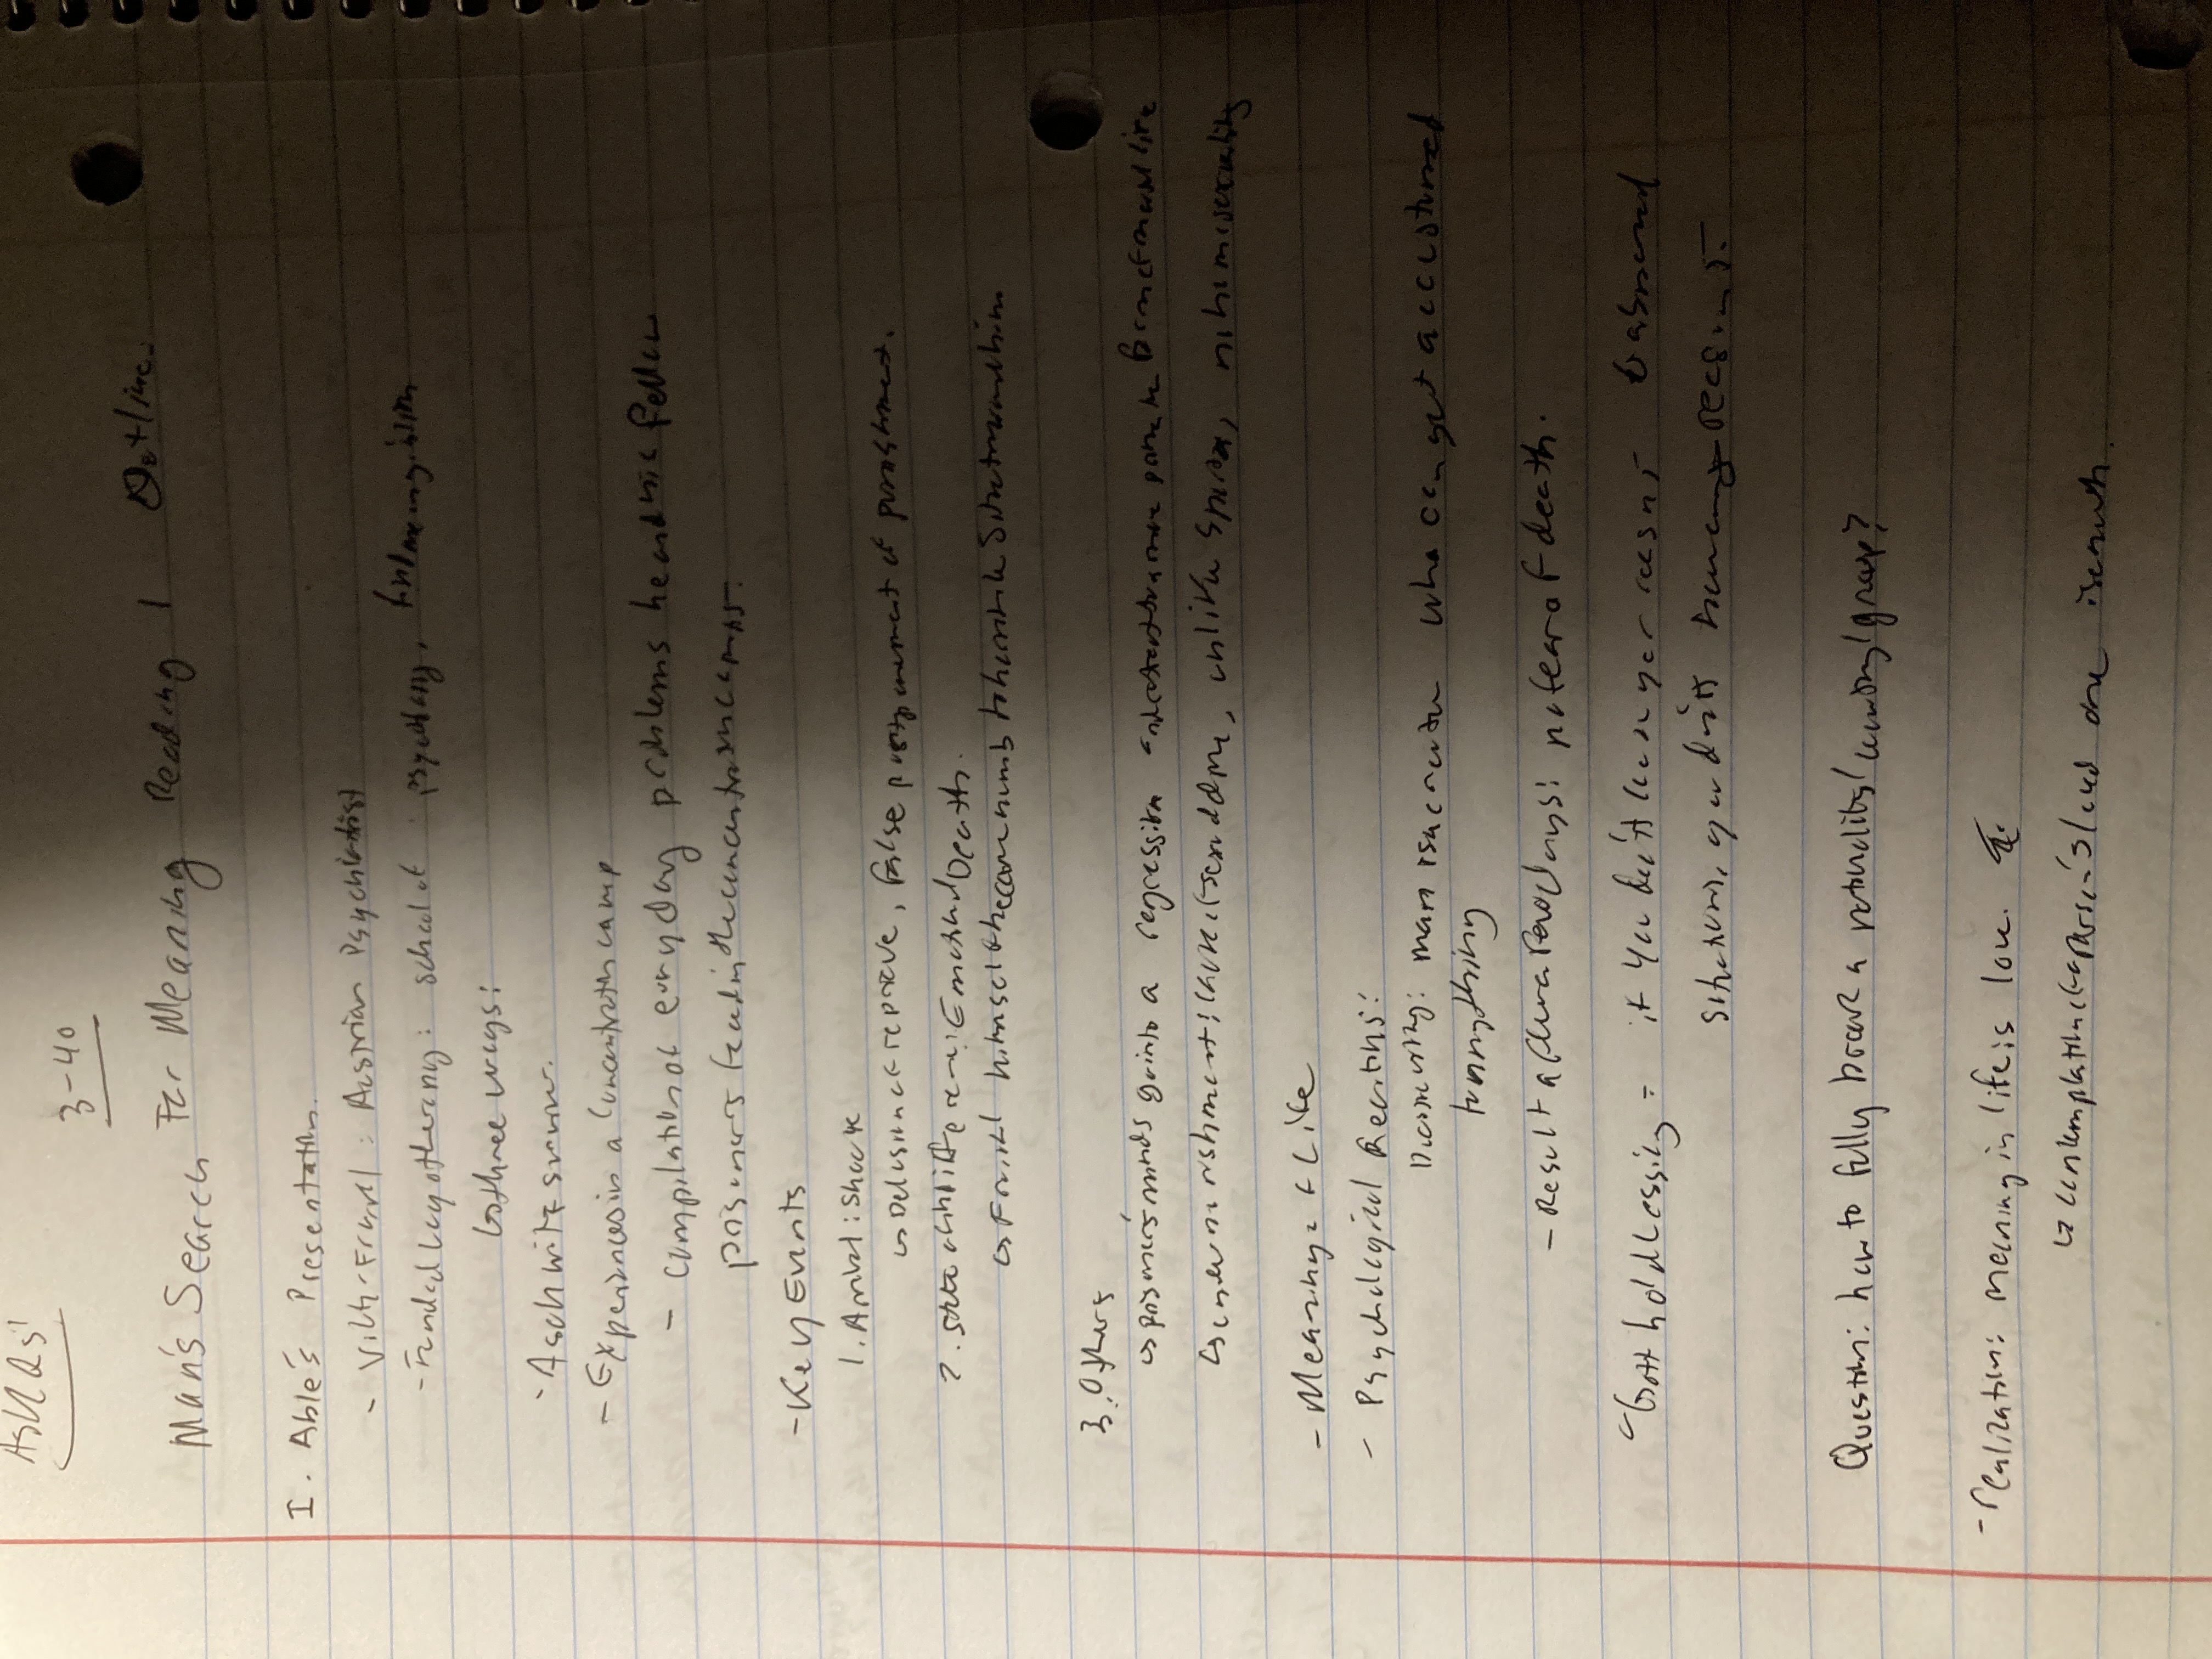 Ask Qs!
3-40
Man's Search For Meaning Reading 1 Outline
I. Able's Presentation.
- Viktor Frankl: Austrian Psychiatrist
- Founded Logotherapy: school of psychology,
↳ three ways:
- Aschwitz survivor.
- Experiences in a Concentration camp
- compilation of everyday problems he and his fellow
prisoners faced in the concentration camps.
- Key Events
1. Arrival: Shock
↳ Delusion of reprieve, false postponement of punishment.
2. State of indifference: Emotional Death.
↳ Frankl himself became numb to horrible situations around him
3. Others
↳ prisoners' minds go into a regression a more primitive form of mental life
↳ undernourishment: lack of sexual desire, unlike no homosexuality
- Meaning of Life
- Psychological Reactions:
man is a creature who can get accustomed
to anything
- Result after a few days: no fear of death.
- Gotthold Lessing = if you don't lose your reasons to abnormal
situations, you don't have reasons.
Question: how to fully break a nationality/country/group?
- realization: meaning in life is love.
↳ contemplation of a person's loved one is enough.